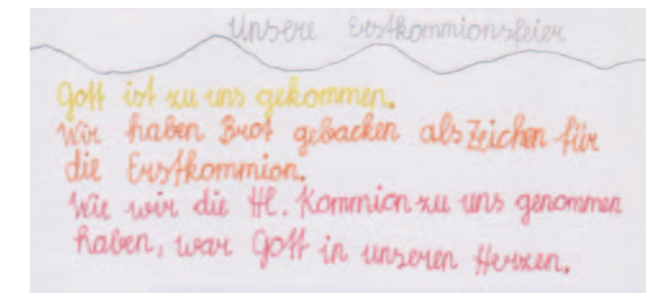 Unsere Erstkommionsfeier
Gott ist zu uns gekommen.
Wir haben Brot gebacken als Zeichen für
die Erstkommion.
Wie wir die Hl. Kommion zu uns genommen
haben, war Gott in unseren Herzen.